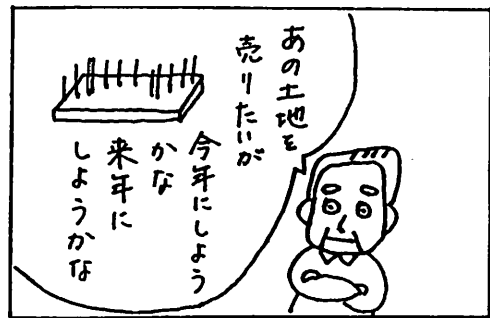 あの土地を
売りたいが
今年にしよう
かな
来年に
しようかな